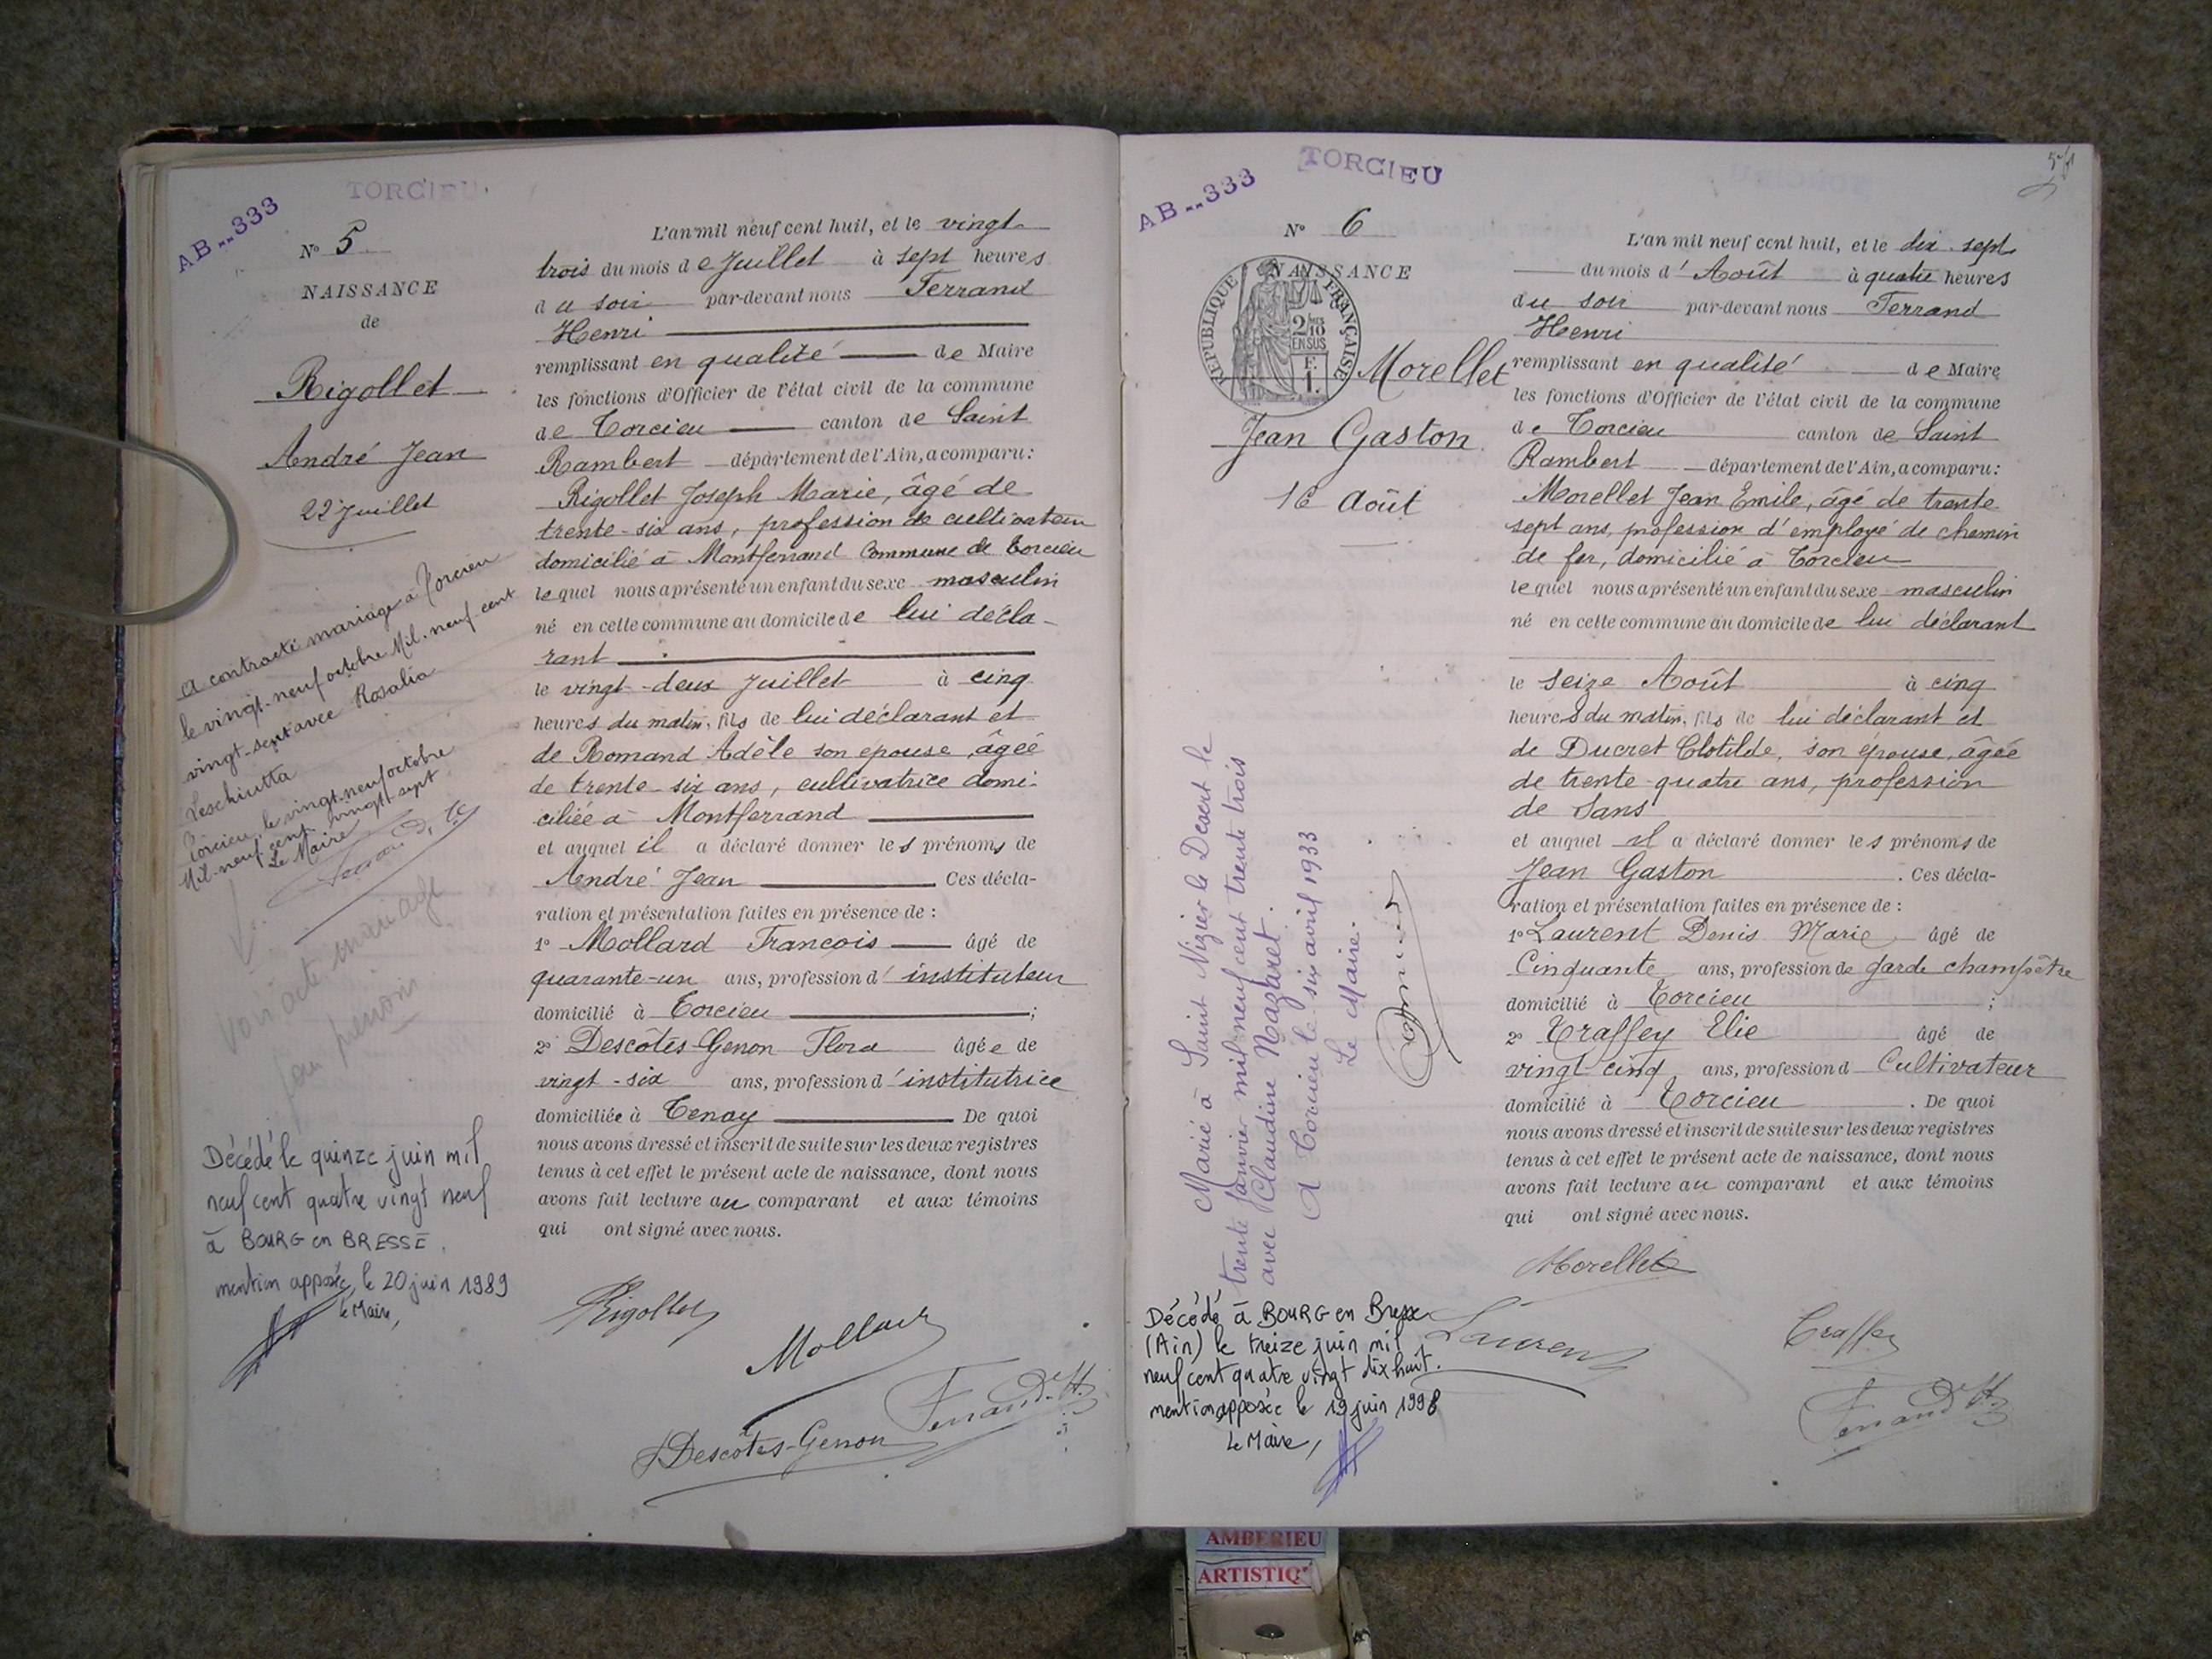 AB..333
TORCIEU
N° 5
NAISSANCE
de
Rigollet
André Jean
22 Juillet
a contracté mariage à Torcieu
le vingt-neuf octobre Mil-neuf-cent
vingt-sept avec Rosalia
Leschiutta
Torcieu, le vingt-neuf octobre
Mil-neuf-cent-vingt-sept
Le Maire
Voir acte mariage
Décédé le quinze juin mil
neuf cent quatre vingt neuf
à BOURG en BRESSE.
mention apposée, le 20 juin 1989
le Maire,
L'an mil neuf cent huit, et le vingt-
trois du mois de Juillet à sept heures
du soir par-devant nous Ferrand
Henri
remplissant en qualité de Maire
les fonctions d'Officier de l'état civil de la commune
de Torcieu canton de Saint
Rambert département de l'Ain, a comparu:
Rigollet Joseph Marie, âgé de
trente-six ans, profession de cultivateur
domicilié à Montferrand Commune de Torcieu
lequel nous a présenté un enfant du sexe masculin
né en cette commune au domicile de lui décla-
rant
le vingt-deux Juillet à cinq
heures du matin, fils de lui déclarant et
de Romand Adèle son épouse, âgée
de trente-six ans, cultivatrice domi-
ciliée à Montferrand
et auquel il a déclaré donner les prénoms de
André Jean Ces décla-
ration et présentation faites en présence de :
1° Mollard François âgé de
quarante-un ans, profession d'instituteur
domicilié à Torcieu ;
2° Descôtes-Genon Flora âgée de
vingt-six ans, profession d'institutrice
domiciliée à Tenay De quoi
nous avons dressé et inscrit de suite sur les deux registres
tenus à cet effet le présent acte de naissance, dont nous
avons fait lecture au comparant et aux témoins
qui ont signé avec nous.
Rigollet
Mollard
Ferrand H.
Descôtes-Genon
AB..333
TORCIEU
N° 6
NAISSANCE
REPUBLIQUE FRANÇAISE
2/10
EN SUS
Morellet
Jean Gaston
16 Août
Marié à Saint Nizier le Désert le
trente janvier mil neuf cent trente trois
avec Claudine Nazaret.
A Torcieu le six avril 1933
Le Maire.
Décédé à BOURG en Bresse
(Ain) le treize juin mil
neuf cent quatre vingt dix huit.
mention apposée le 19 juin 1998
Le Maire,
L'an mil neuf cent huit, et le dix-sept
du mois d'Août à quatre heures
du soir par-devant nous Ferrand
Henri
remplissant en qualité de Maire
les fonctions d'Officier de l'état civil de la commune
de Torcieu canton de Saint
Rambert département de l'Ain, a comparu:
Morellet Jean Emile, âgé de trente
sept ans, profession d'employé de chemin
de fer, domicilié à Torcieu
lequel nous a présenté un enfant du sexe masculin
né en cette commune au domicile de lui déclarant
le seize Août à cinq
heures du matin, fils de lui déclarant et
de Ducret Clotilde, son épouse, âgée
de trente-quatre ans, profession
de Sans
et auquel il a déclaré donner les prénoms de
Jean Gaston. Ces décla-
ration et présentation faites en présence de :
1° Laurent Denis Marie âgé de
Cinquante ans, profession de garde champêtre
domicilié à Torcieu ;
2° Traffey Elie âgé de
vingt cinq ans, profession d Cultivateur
domicilié à Torcieu. De quoi
nous avons dressé et inscrit de suite sur les deux registres
tenus à cet effet le présent acte de naissance, dont nous
avons fait lecture au comparant et aux témoins
qui ont signé avec nous.
Morellet
Laurent
Traffey
Ferrand H.
AMBERIEU
ARTISTIQ